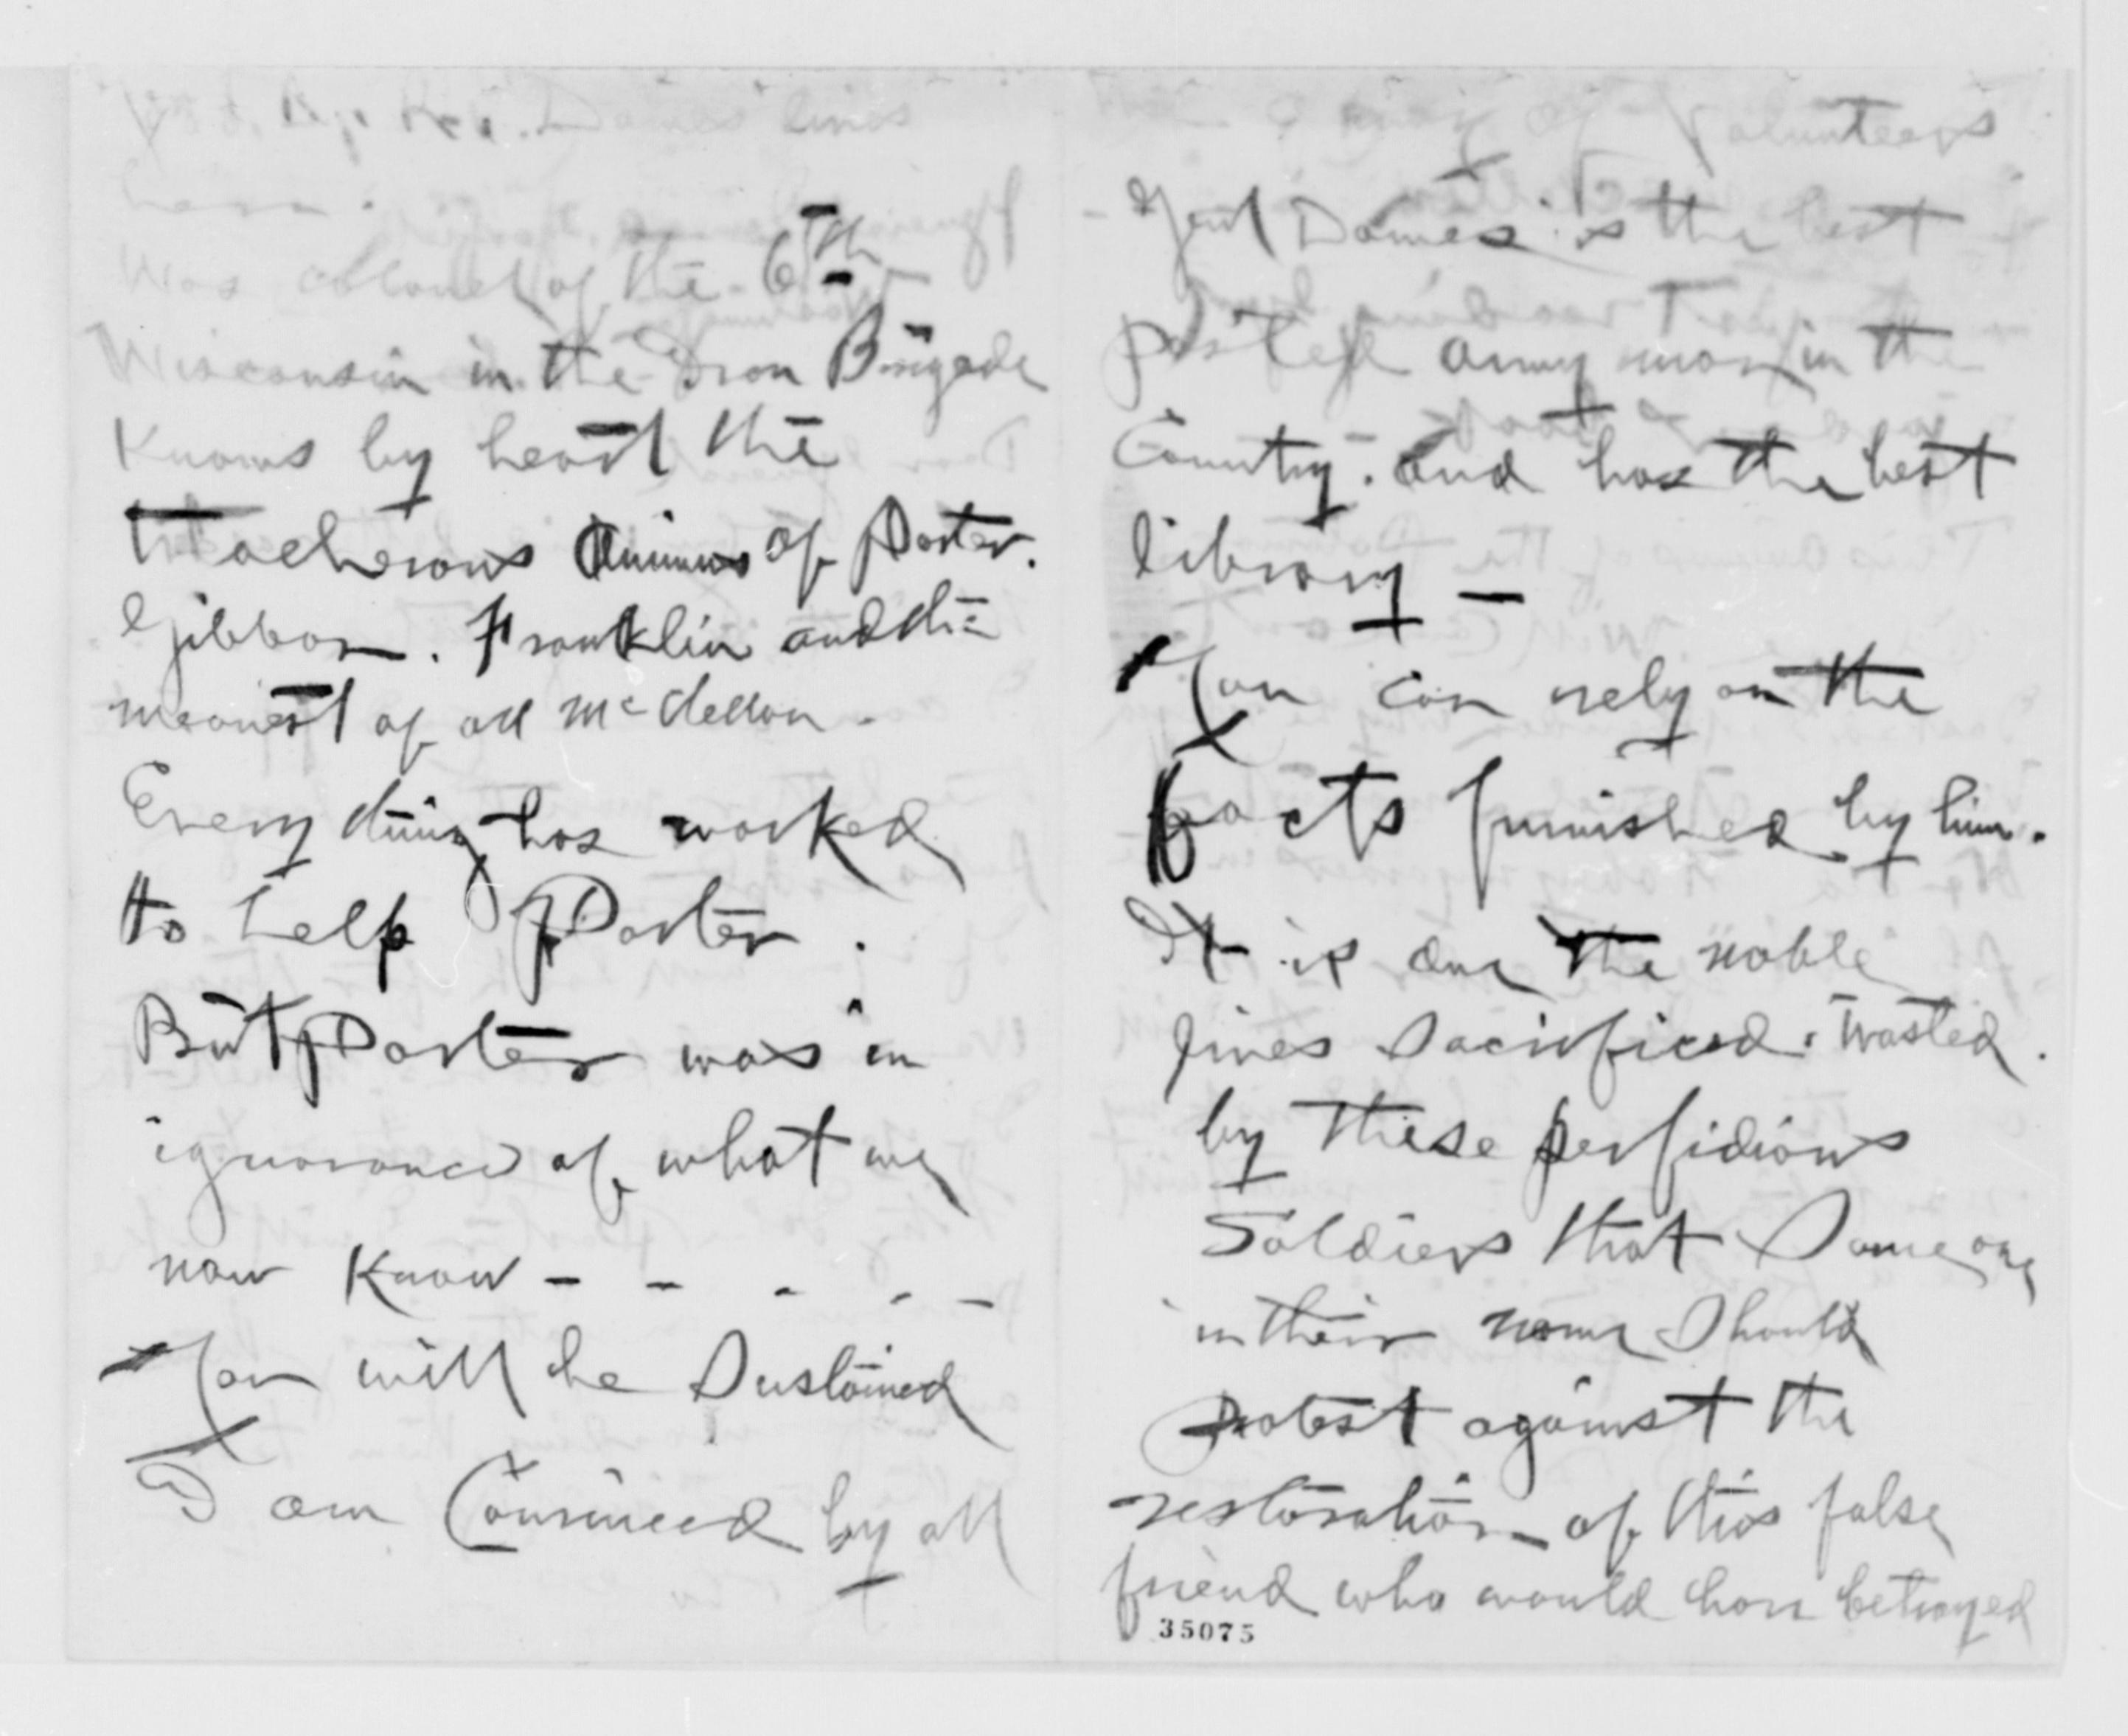 Dawes lives
here.
Was Colonel of the 6th
Wisconsin in the Iron Brigade
Knows by heart the
treacherous animus of Porter.
Gibbon. Franklin and the
meanest of all McClellan.
Every thing has worked
to help Porter.
But Porter was in
ignorance of what we
now know - - - - -
You will be Sustained
I am Convinced by all
Volunteers
Genl Dawes is the best
posted army man in the
Country. and has the best
library -
You can rely on the
facts furnished by him.
It is due the noble
lives Sacrificed. Wasted.
by these perfidious
Soldiers that Some one
in their name Should
Protest against the
restoration of this false
friend who would have betrayed
35075